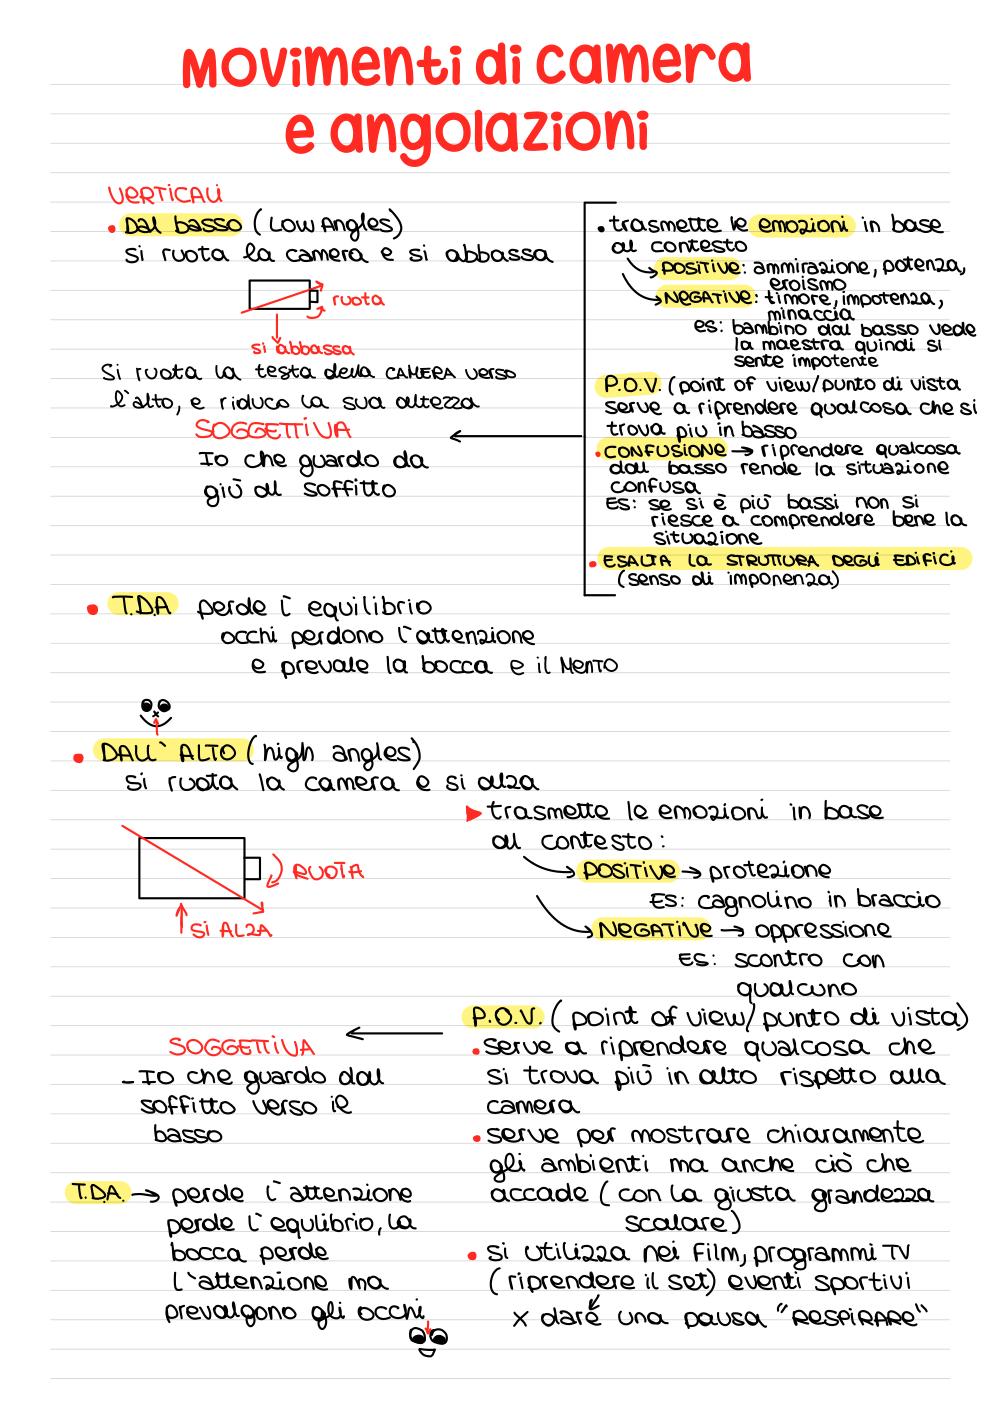 Movimenti di camera
e angolazioni
VERTICALI
• Dal basso (Low Angles)
si ruota la camera e si abbassa
ruota
si abbassa
Si ruota la testa della CAMERA verso
l'alto, e riduco la sua altezza
SOGGETTIVA
Io che guardo da
giù al soffitto
• trasmette le emozioni in base
al contesto
POSITIVE: ammirazione, potenza,
eroismo
NEGATIVE: timore, impotenza,
minaccia
es: bambino dal basso vede
la maestra quindi si
sente impotente
P.O.V. (point of view/punto di vista
serve a riprendere qualcosa che si
trova più in basso
• CONFUSIONE → riprendere qualcosa
dal basso rende la situazione
confusa
ES: se si è più bassi non si
riesce a comprendere bene la
situazione
• ESALTA LA STRUTTURA DEGLI EDIFICI
(senso di imponenza)
• T.D.A perde l'equilibrio
occhi perdono l'attenzione
e prevale la bocca e il MENTO
• DALL'ALTO (high angles)
si ruota la camera e si alza
RUOTA
SI ALZA
▶ trasmette le emozioni in base
al contesto:
POSITIVE → protezione
ES: cagnolino in braccio
NEGATIVE → oppressione
ES: scontro con
qualcuno
P.O.V. (point of view/punto di vista)
• serve a riprendere qualcosa che
si trova più in alto rispetto alla
camera
• serve per mostrare chiaramente
gli ambienti ma anche ciò che
accade (con la giusta grandezza
scalare)
• si utilizza nei film, programmi TV
(riprendere il set) eventi sportivi
x dare una pausa "RESPIRARE"
SOGGETTIVA
- Io che guardo dal
soffitto verso il
basso
T.D.A. → perde l'attenzione
perde l'equlibrio, la
bocca perde
l'attenzione ma
prevalgono gli occhi